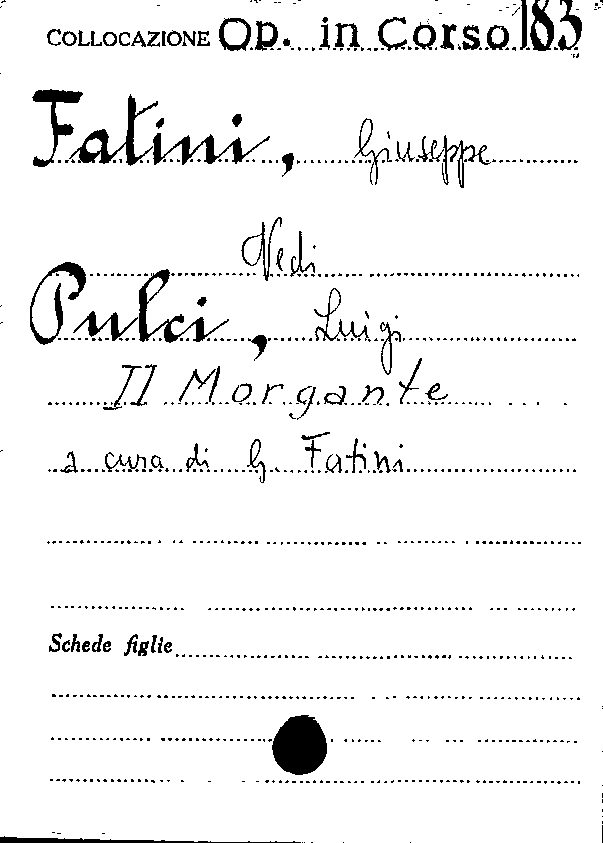 COLLOCAZIONE Op. in Corso 183
Fatini, Giuseppe
Vedi
Pulci, Luigi
Il Morgante
a cura di G. Fatini
Schede figlie